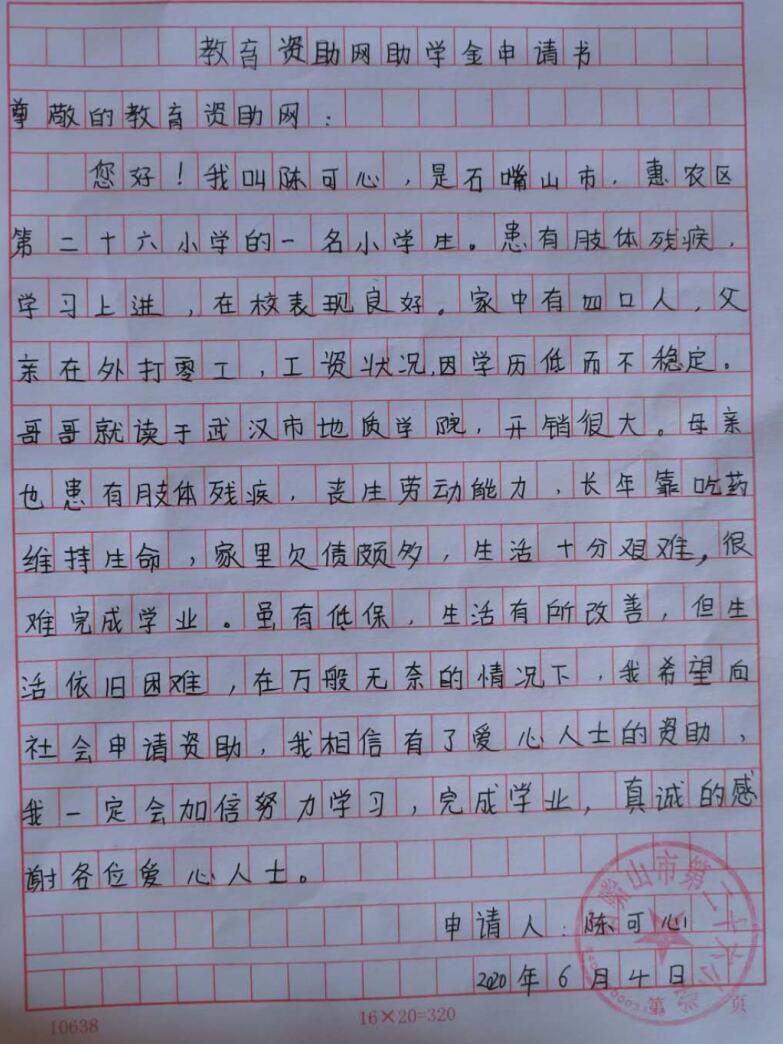 教育资助网助学金申请书
尊敬的教育资助网：
您好！我叫陈可心，是石嘴山市，惠农区
第二十六小学的一名小学生。患有肢体残疾，
学习上进，在校表现良好。家中有四口人，父
亲在外打零工，工资状况，因学历低而不稳定。
哥哥就读于武汉市地质学院，开销很大。母亲
也患有肢体残疾，丧生劳动能力，长年靠吃药
维持生命，家里欠债颇多，生活十分艰难，很
难完成学业。虽有低保，生活有所改善，但生
活依旧困难，在万般无奈的情况下，我希望向
社会申请资助，我相信有了爱心人士的资助，
我一定会加信努力学习，完成学业，真诚的感
谢各位爱心人士。
申请人：陈可心
2020年6月4日
嘴山市第二十六小学
第 页
10638
16×20=320